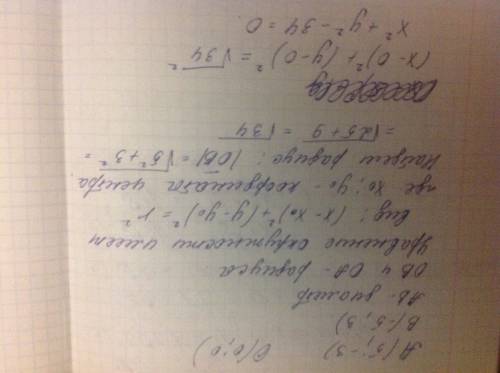 A(5;-3) O(0;0)
B(-5;3)
АВ-диаметр
ОВ и ОА- радиуса
Уравнение окружности имеет
вид: (x-x₀)²+(y-y₀)²=r²
где x₀;y₀- координата центра
Найдем радиус: |OB|=√5²+3²=
=√25+9=√34
(x-0)²+(y-0)²=√34²
x²+y²-34=0